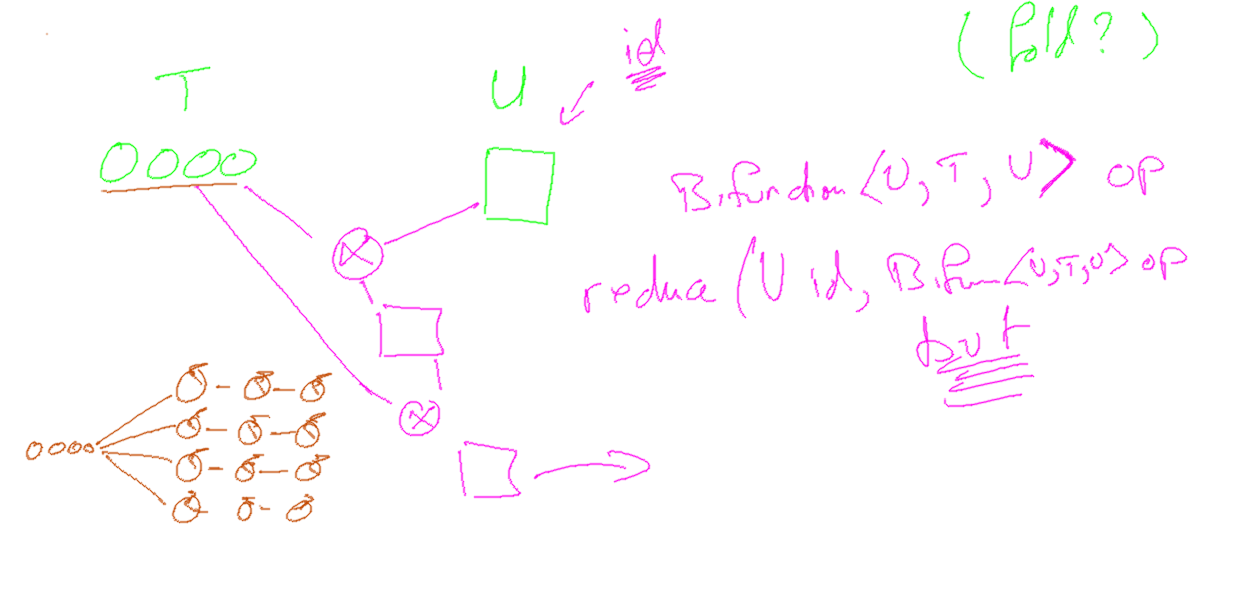 (fold?)
id
T
U
Bifunction <U, T, U> op
reduce (U id, Bifun<U,T,U> op
but